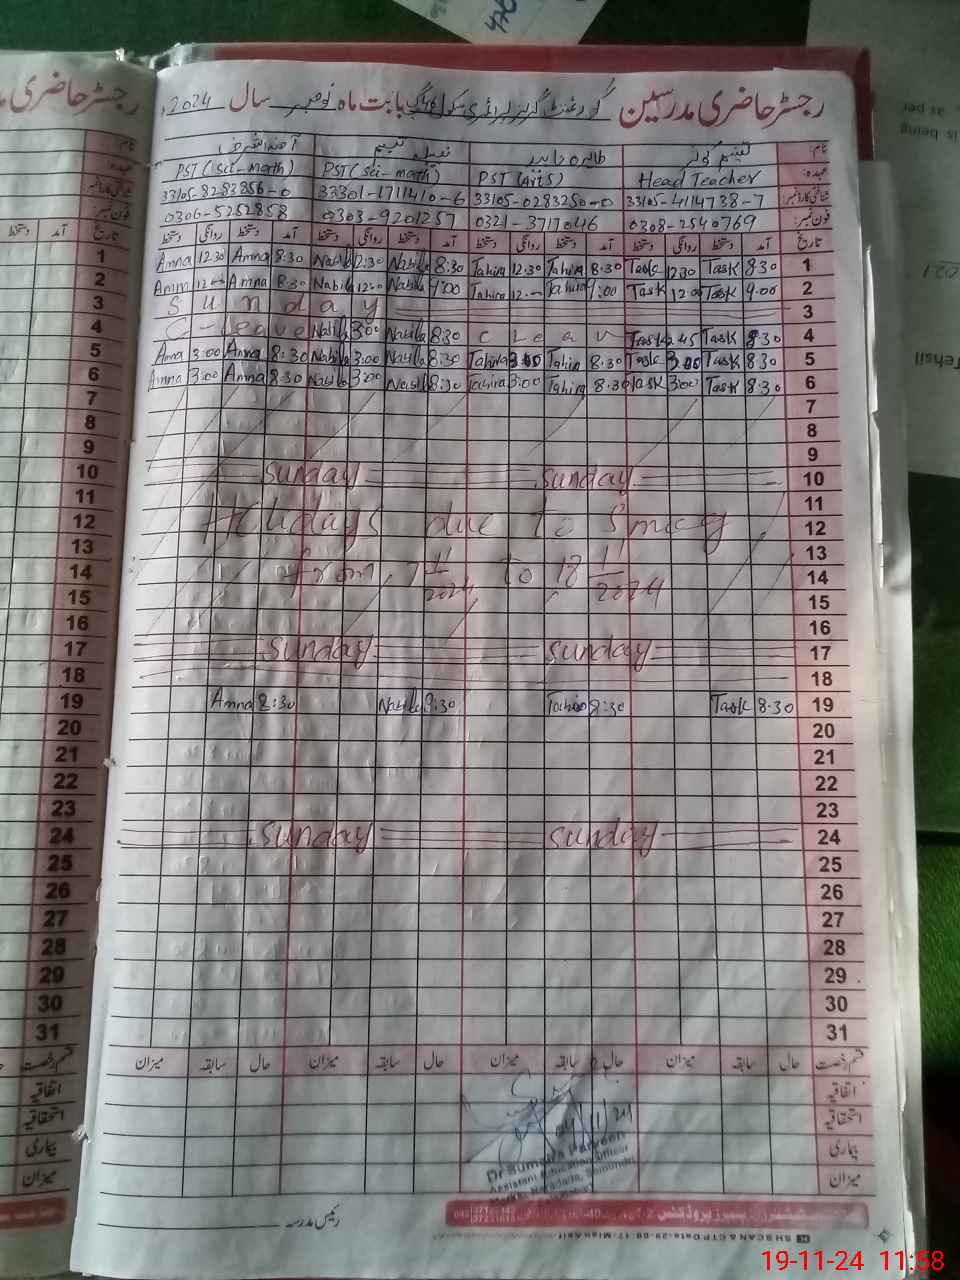 رجسٹر حاضری مدرسین گورنمنٹ گرلز پرائمری سکول بابت ماہ نومبر سال 2024ء
نام: تسنیم کوثر طاہرہ نبیلہ تسنیم آمنہ اشرف
عہدہ: Head Teacher PST (Arts) PST (Sci-math) PST (Sci-math)
شناختی کارڈ نمبر: 33105-4114738-7 33105-0283250-0 33301-1711410-6 33105-8283856-0
فون نمبر: 0308-2540769 0321-3717046 0303-9201257 0306-5252858
تاریخ آمد دستخط روانگی دستخط آمد دستخط روانگی دستخط آمد دستخط روانگی دستخط آمد دستخط روانگی دستخط
1 Amna 12:30 Amna 8:30 Nabila 12:30 Nabila 8:30 Tahira 12:30 Tahira 8:30 Task 12:30 Task 8:30 1
2 Amna 12:00 Amna 8:30 Nabila 12:00 Nabila 9:00 Tahira 12:00 Tahira 9:00 Task 12:00 Task 9:00 2
3 Sunday 3
4 C-leave Nabila 3:00 Nabila 8:30 C Leav Task 2:45 Task 8:30 4
5 Amna 3:00 Amna 8:30 Nabila 3:00 Nabila 8:30 Tahira 3:00 Tahira 8:30 Task 3:00 Task 8:30 5
6 Amna 3:00 Amna 8:30 Nabila 3:00 Nabila 8:30 Tahira 3:00 Tahira 8:30 Task 3:00 Task 8:30 6
7 7
8 8
9 9
10 Sunday Sunday 10
11 11
12 Holidays due to Smog 12
13 13
14 from 7 11/2024 to 18 11/2024 14
15 15
16 16
17 Sunday Sunday 17
18 18
19 Amna 8:30 Nabila 8:30 Tahira 8:30 Task 8:30 19
20 20
21 21
22 22
23 23
24 Sunday Sunday 24
25 25
26 26
27 27
28 28
29 29
30 30
31 31
قسم رخصت حال سابقہ میزان حال سابقہ میزان حال سابقہ میزان حال سابقہ میزان
اتفاقیہ اتفاقیہ
استحقاقیہ استحقاقیہ
بیماری بیماری
میزان میزان
Dr Sumaira Parveen
Assistant Education Officer
رئیس مدرسہ
19-11-24 11:58